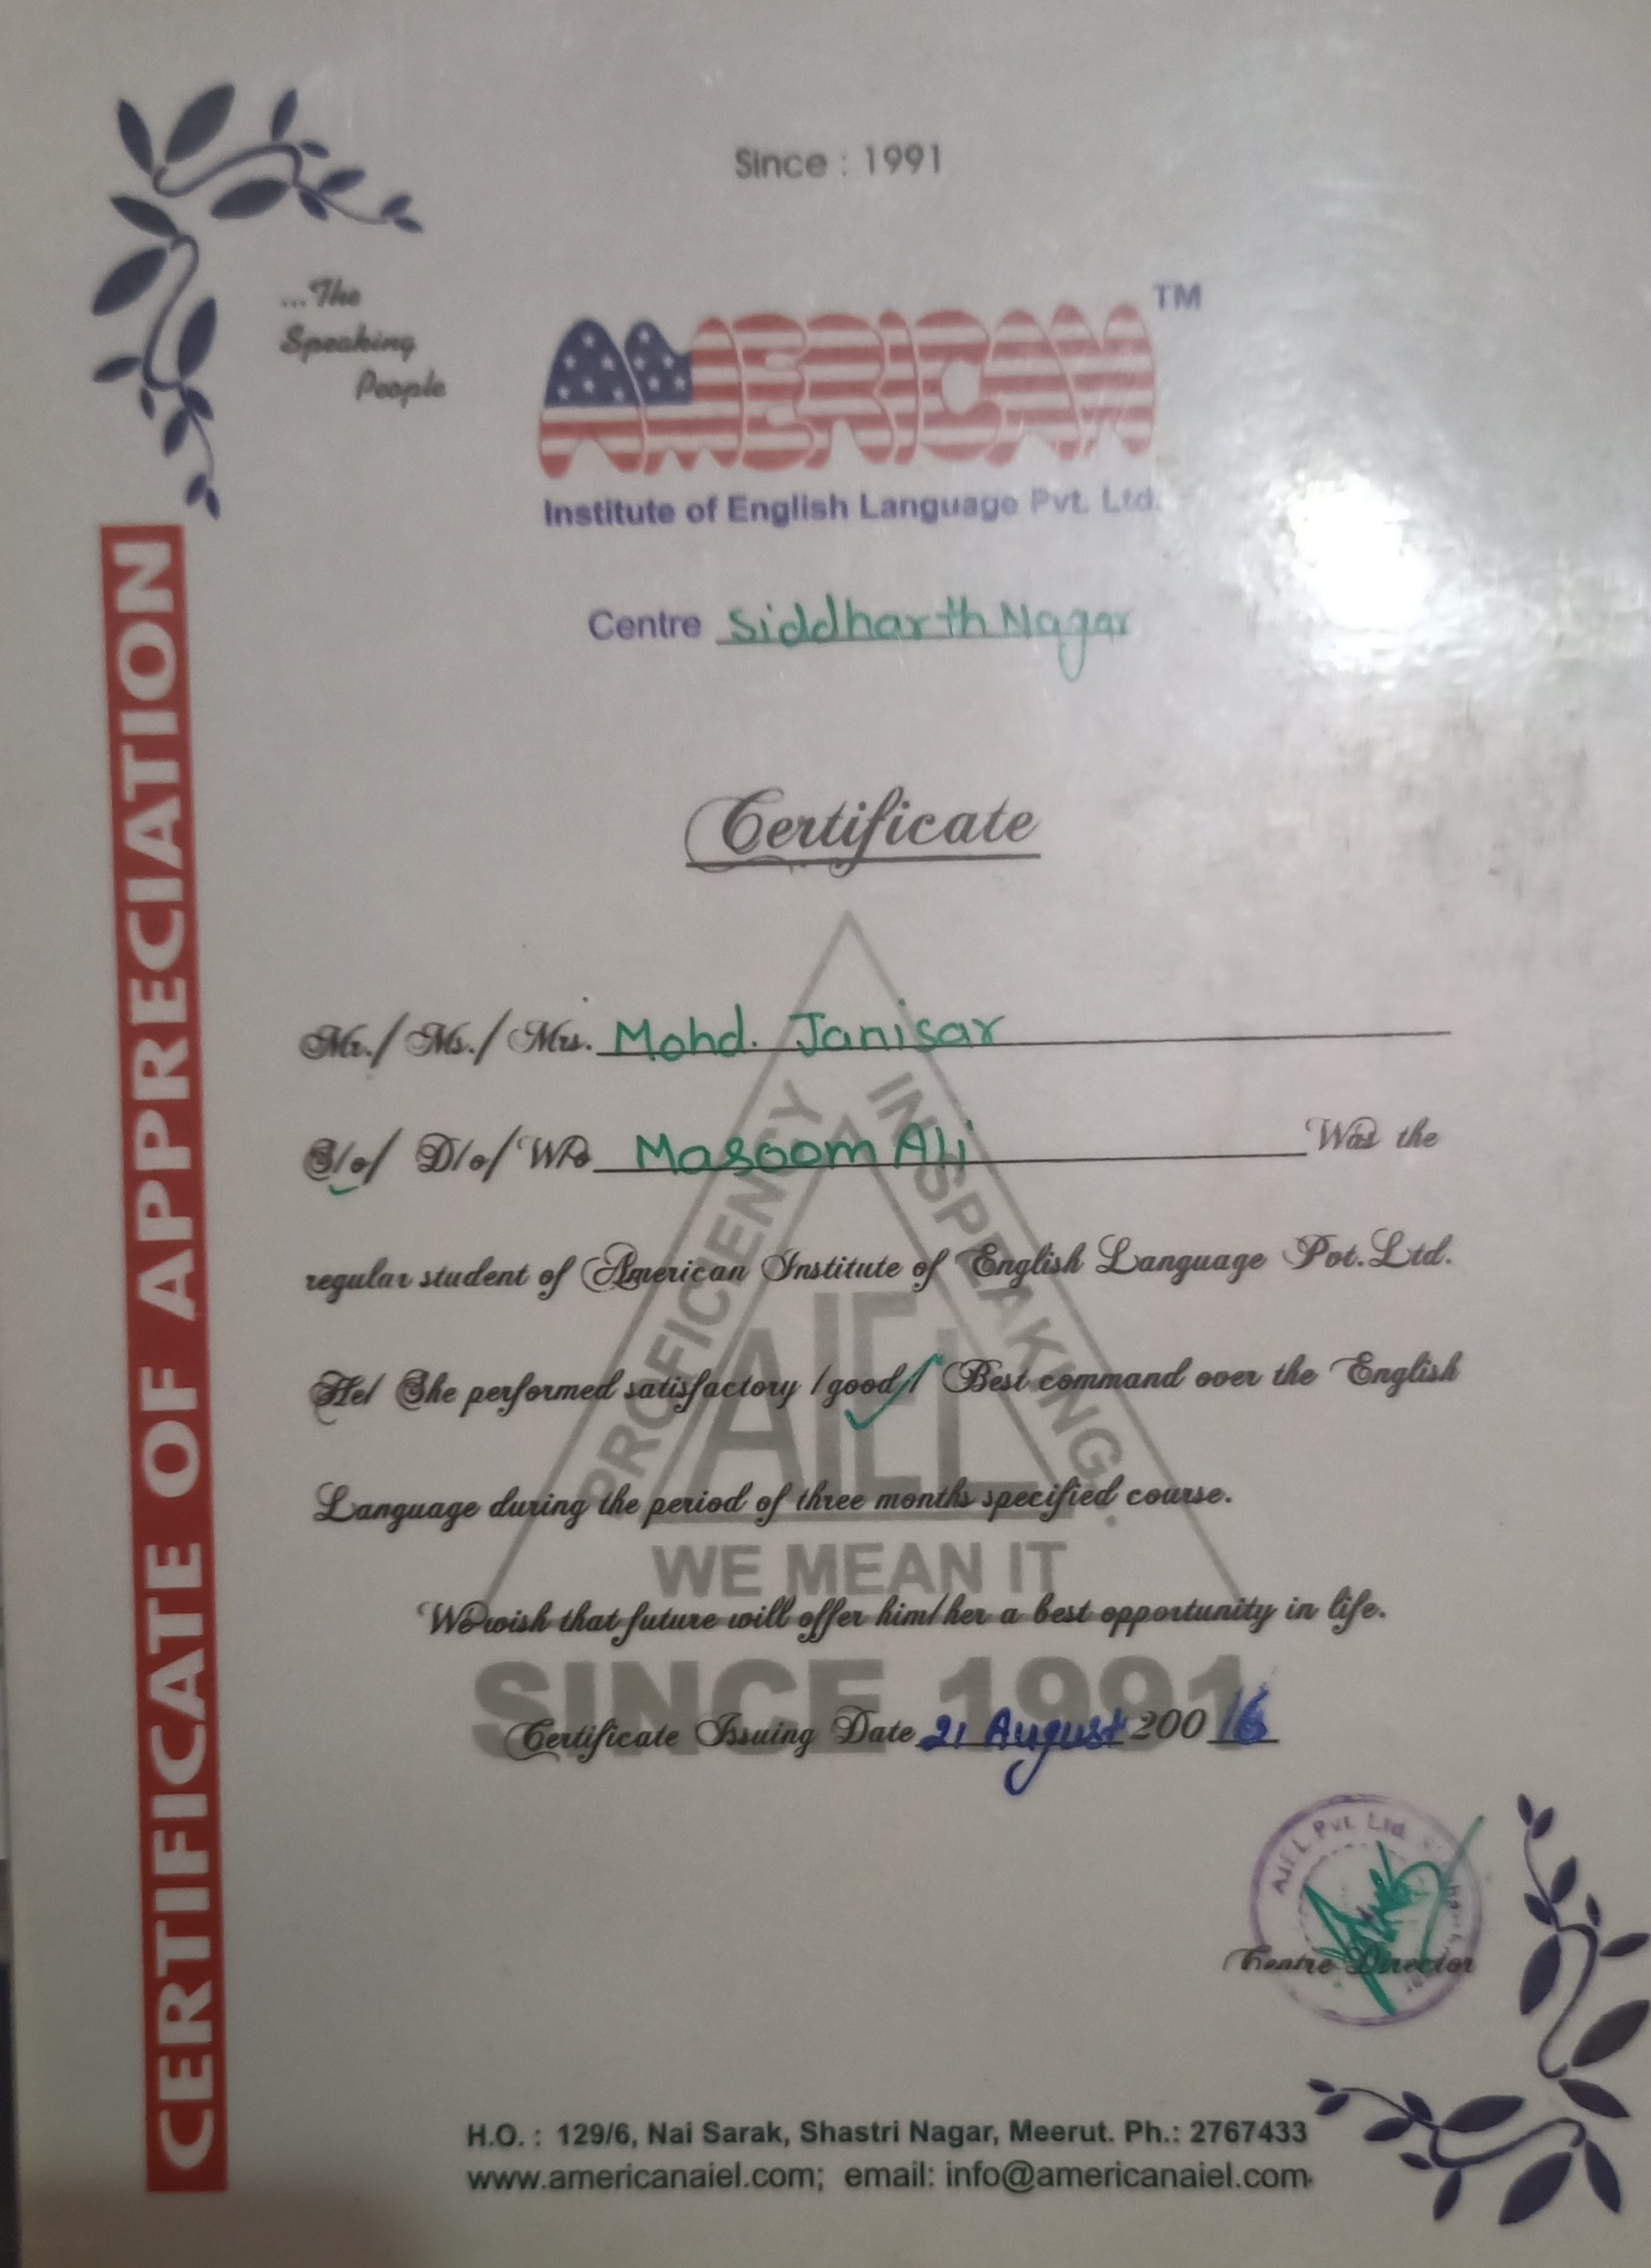 Since : 1991
...The
Speaking
People
AMERICAN TM
Institute of English Language Pvt. Ltd.
Centre Siddharth Nagar
Certificate
CERTIFICATE OF APPRECIATION
Mr./ Ms./ Mrs. Mohd. Janisar
S/o/ D/o/ W/o Masoom Ali Was the
regular student of American Institute of English Language Pvt.Ltd.
He/ She performed satisfactory /good/ Best command over the English
Language during the period of three months specified course.
We wish that future will offer him/her a best opportunity in life.
Certificate Issuing Date 21 August 200 16
PROFICIENCY IN SPEAKING.
AIEL
WE MEAN IT
SINCE 1991
AIEL Pvt. Ltd.
Centre Director
H.O. : 129/6, Nai Sarak, Shastri Nagar, Meerut. Ph.: 2767433
www.americanaiel.com; email: info@americanaiel.com